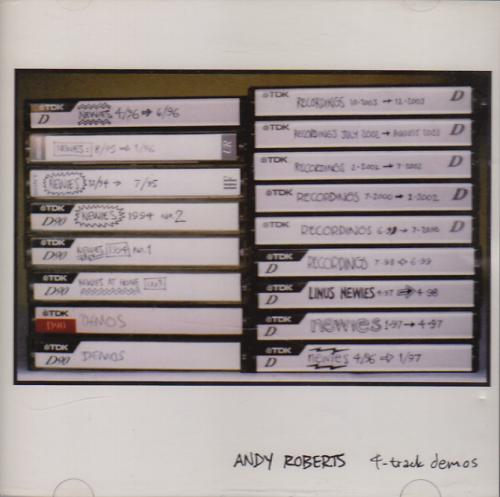 TDK
D
NEWIES 4/96 → 6/96
NEWIES: 8/95 → 1/96
NEWIES 12/94 → 7/95
HF
TDK
D90
NEWIES 1994 no. 2
TDK
D90
NEWIES 1994 NO. 1
TDK
D90
NEWIES AT HOME
TDK
D90
DEMOS
TDK
D90
DEMOS
TDK
RECORDINGS 10-2003 → 12-2003
D
TDK
RECORDINGS JULY 2002 → AUGUST 2003
D
TDK
RECORDINGS 2-2002 → 7-2002
D
TDK
RECORDINGS 7-2000 → 2-2002
D
TDK
RECORDINGS 6-99 → 7-2000
D
TDK
D
RECORDINGS 7-98 → 6-99
TDK
D
LINUS NEWIES 4-97 → 4-98
TDK
D
newies 1-97 → 4-97
TDK
D
newies 4/96 → 1/97
ANDY ROBERTS 4-track demos